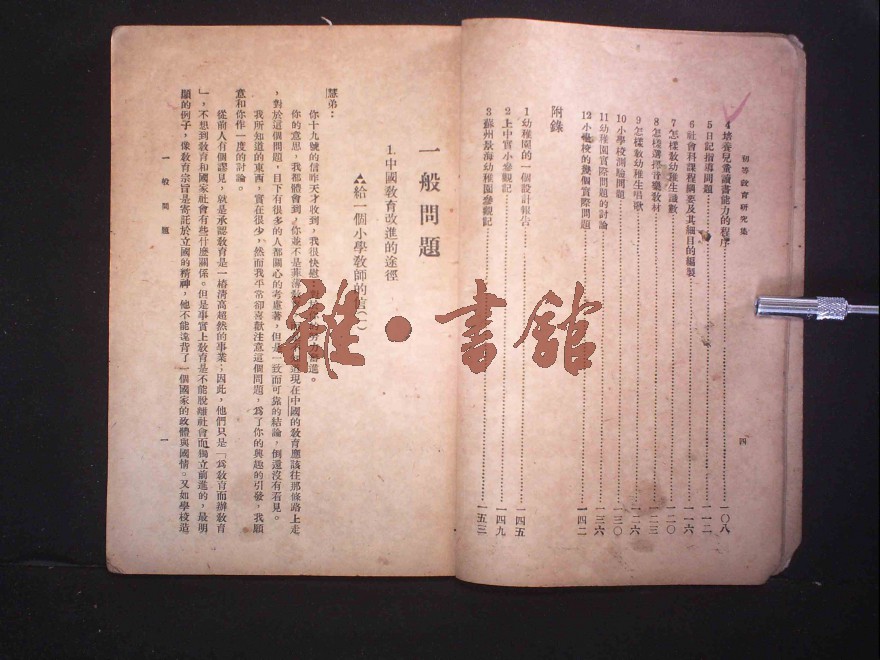 初等教育研究集
4 培養兒童讀書能力的程序 一〇八
5 日記指導問題 一一二
6 社會科課程綱要及其細目的編製 一一六
7 怎樣教幼稚生識數 一二〇
8 怎樣選擇音樂教材 一二三
9 怎樣教幼稚生唱歌 一二六
10 小學校測驗問題 一三〇
11 幼稚園實際問題的討論 一三六
12 小學校的幾個實際問題 一四二
附錄
1 幼稚園的一個設計報告 一四五
2 上中實小參觀記 一四九
3 蘇州景海幼稚園參觀記 一五三
四
一般問題
1. 中國教育改進的途徑
給一個小學教師的信(一)
慧弟:
你十九號的信昨天才收到,我很快慰
進。
你的意思,我都體會到,你並不是菲薄教
現在中國的教育應該往那條路上走
,對於這個問題,目下有很多的人都關心的考慮著,但是一致而可靠的結論,倒還沒有看見。
我所知道的東西,實在很少,然而我平常卻喜歡注意這個問題,爲了你的興趣的引發,我願
意和你作一度的討論。
從前人有個謬見,就是承認教育是一樁清高超然的事業;因此,他們只是「爲教育而辦教育
」,不想到教育和國家社會有些什麼關係。但是事實上教育是不能脫離社會而獨立前進的,最明
顯的例子,像教育宗旨是寄託於立國的精神,他不能違背了一個國家的政體與國情。又如學校造
一般問題
一
雜·書館